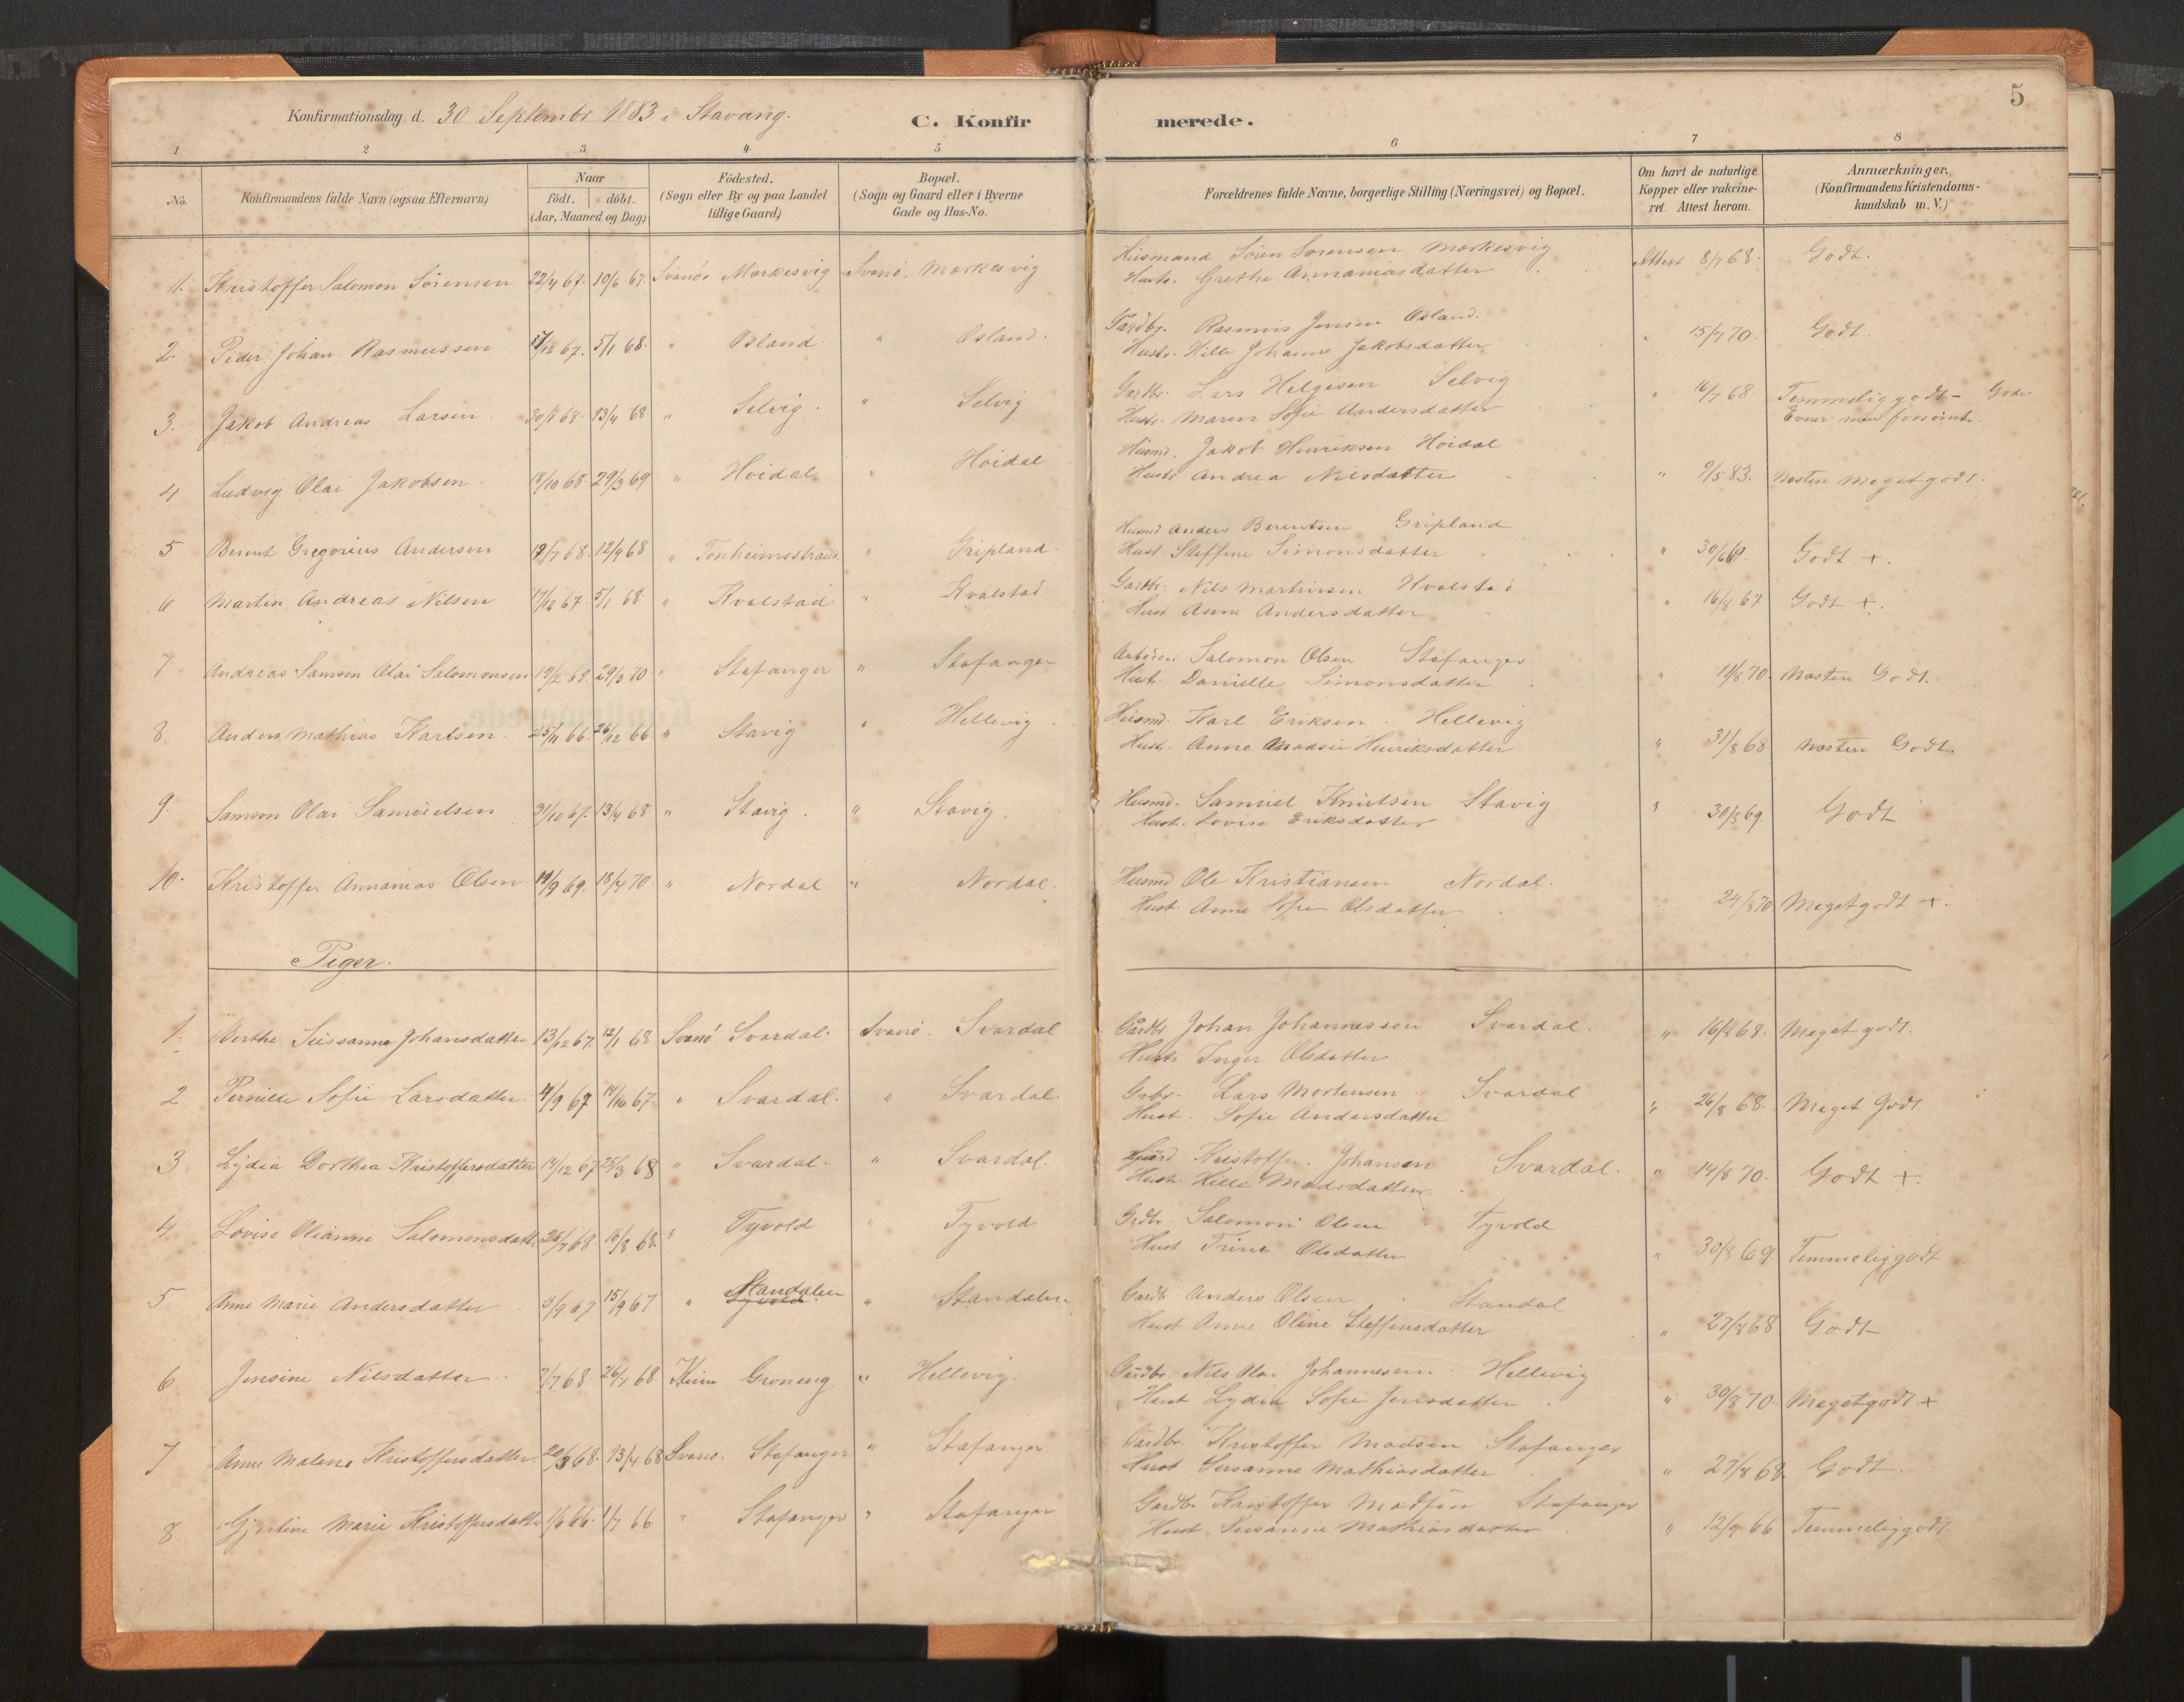 5
Konfirmationsdag d. 30 Septembr 1883 i Stavang.
C. Konfirmerede.
1 2 3 4 5 6 7 8
No.
Konfirmandens fulde Navn (ogsaa Efternavn)
Naar
födt. döbt.
(Aar, Maaned og Dag)
Födested.
(Sogn eller By og paa Landet
tillige Gaard)
Bopæl.
(Sogn og Gaard eller i Byerne
Gade og Hus-No.
Forældrenes fulde Navne, borgerlige Stilling (Næringsvei) og Bopæl.
Om havt de naturlige
Kopper eller vakcine-
ret. Attest herom.
Anmærkninger,
(Konfirmandens Kristendoms-
kundskab m. V.)
1. Kristoffer Salomon Sörensen 22/4 67. 10/6 67. Svanöe Markesvig Svanö. Markesvig Husmand Sören Sorensen Markesvig Attest 8/7 68. Godt.
Hustr. Grethe Annaniasdatter
2. Peder Johan Rasmussen /12 67. 5/1 68. " Osland " Osland. Gardbr. Rasmus Jensen Osland. " 15/7 70. Godt.
Hustr. Hille Johanne Jakobsdatter
3. Jakob Andreas Larsen. 30/1 68. 13/4 68 " Selvig. " Selvig Gardbr. Lars Helgesen Selvig " 16/7 68. Temmelig godt - Gode
Hustr. Maren Sofie Andersdatter Evner men forsömt.
4 Ludvig Olai Jakobsen. 18/10 68. 29/3 69 " Hoidal " Hoidal Husmd. Jakob Henriksen Hoidal " 9/5 83. Næsten Meget godt.
Hustr Andrea Nilsdatter
5 Berent Gregorius Andersen 12/7 68. 12/9 68 " Tonheimsstrand " Gripland. Husmd Anders Berentsen Gripland " 30/6 69. Godt +.
Hust Steffine Simonsdatter
6 Martin Andreas Nilsen 17/12 67. 5/1 68. " Kvalstad " Kvalstad Gardbr. Nils Martinsen Kvalstad " 16/8 67 Godt +.
Hust Anne Andersdatter
7 Andreas Samson Olai Salomonsen 19/2 69. 29/3 70. " Stafanger " Stafanger Salomon Olsen Stafanger " 11/8 70. Næsten Godt.
Hustr. Danielle Simonsdatter
8 Anders Mathias Karlsen. 25/11 66. 26/12 66 " Stavig " Hellevig Husmd. Karl Eriksen. Hellevig " 31/8 68 Næsten Godt.
Hustr. Anne Madsie Henriksdatter
9. Samson Olai Samuelsen 31/10 67. 13/4 68 " Stavig. " Stavig. Husmd. Samuel Knutsen Stavig " 30/8 69. Godt
Hust. Lovise Eriksdatter
10. Kristoffer Annanias Olsen 19/9 69. 18/4 70 " Nordal " Nordal. Husmd Ole Kristiansen Nordal. 24/8 70 Meget godt +.
Hust. Anne Sofie Olsdatter
Piger.
1. Berthe Sussanna Johansdatter 13/12 67. 12/1 68 Svanö Svardal. Svanö. Svardal Gårdbr Johan Johannessen Svardal. " 16/8 68. Meget godt.
Hustr Inger Olsdatter
2 Pernille Sofie Larsdatter. 4/9 67 14/10 67. " Svardal. " Svardal. Grbr. Lars Mortensen Svardal " 26/8 68. Meget Godt
Hust. Sofie Andersdatter
3. Lydia Dorthea Kristoffersdatter 14/12 67 25/3 68 " Svardal. " Svardal. Kristoffer. Johansen Svardal. " 14/8 70. Godt +.
Hustr. Kille Madsdatter
4. Lovise Olianne Salomonsdatt. 26/7 68 16/8 68. " Tyvold " Tyvold Grdbr. Salomon Olsen Tyvold " 30/8 69 Temmelig godt
Hust Trine Olsdatter
5 Anne Marie Andersdatter 3/9 67 15/9 67 " Standalen Tyvold. " Standalen Gardb. Anders Olsen Standal " 27/8 68 Godt
Hust Anne Oline Steffensdatter
6 Jensine Nilsdatter. 7/7 68. 26/7 68. Kinn Groneng. " Hellevig. Gårdbr. Nils Olai Johannesen Hellevig " 30/8 70 Meget godt +
Hust Lydia Sofie Jensdatter
7 Anne Malene Kristoffersdatter. 20/3 68. 13/4 68 Svanö. Stafanger " Stafanger Gårdbr. Kristoffer Madsen Stafanger " 27/8 68. Godt.
Hust Susanne Mathiasdatter
8 Gjertine Marie Kristoffersdatter 1/6 66. 1/7 66 " Stafanger " Stafanger Gardbr Kristoffer Madsen Stafanger " 12/9 66 Temmelig godt.
Hust Susanne Mathiasdatter